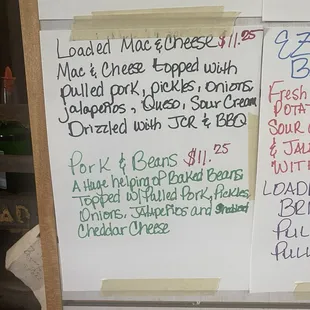 Loaded Mac & Cheese $11.25
Mac & Cheese topped with
pulled pork, pickles, onions,
jalapeños, Queso, Sour Cream
Drizzled with JCR & BBQ
Pork & Beans $11.25
A Huge helping of Baked Beans
Topped w/ Pulled Pork, Pickles,
Onions, Jalapeños and Shredded
Cheddar Cheese
Fresh
Pota
Sour
& Ja
With
Load
Br
Pul
Pull